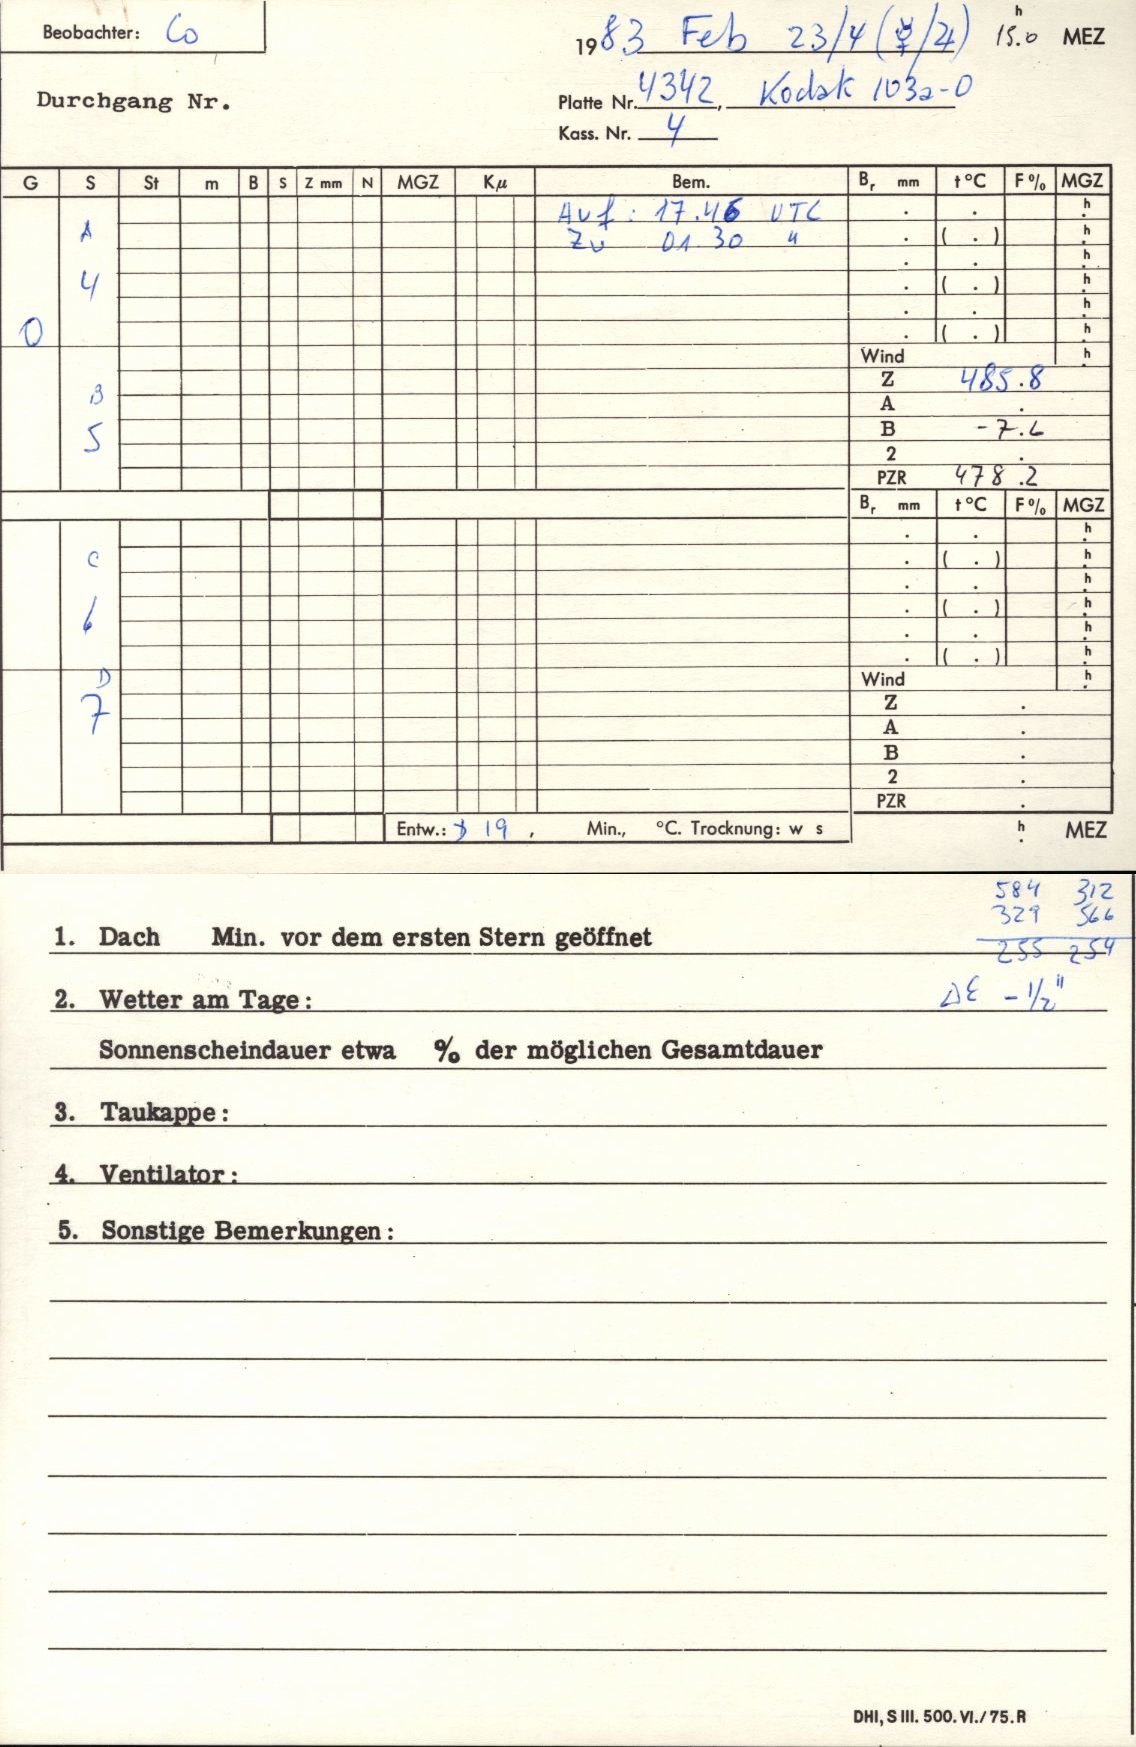 Beobachter: Co
1983 Feb 23/4 (☿/♃) 15.0 h MEZ
Durchgang Nr.
Platte Nr. 4342, Kodak 103a-O
Kass. Nr. 4
G S St m B S Z mm N MGZ Kμ Bem. Br mm t °C F % MGZ
Auf: 17.46 UTC . . h
A Zu 01 30 " . ( . ) h
. . h
4 . ( . ) h
. . h
0 . ( . ) h
Wind h
Z 485.8
B A .
B -7.6
5 2 .
PZR 478.2
Br mm t °C F % MGZ
. . h
C . ( . ) h
. . h
6 . ( . ) h
. . h
. ( . ) h
D Wind h
7 Z .
A .
B .
2 .
PZR .
Entw.: 19 , Min., °C. Trocknung: w s h MEZ
584 312
329 566
255 254
1. Dach Min. vor dem ersten Stern geöffnet
2. Wetter am Tage: ΔE -1/2"
Sonnenscheindauer etwa % der möglichen Gesamtdauer
3. Taukappe:
4. Ventilator:
5. Sonstige Bemerkungen:
DHI, S III. 500. VI./75. R